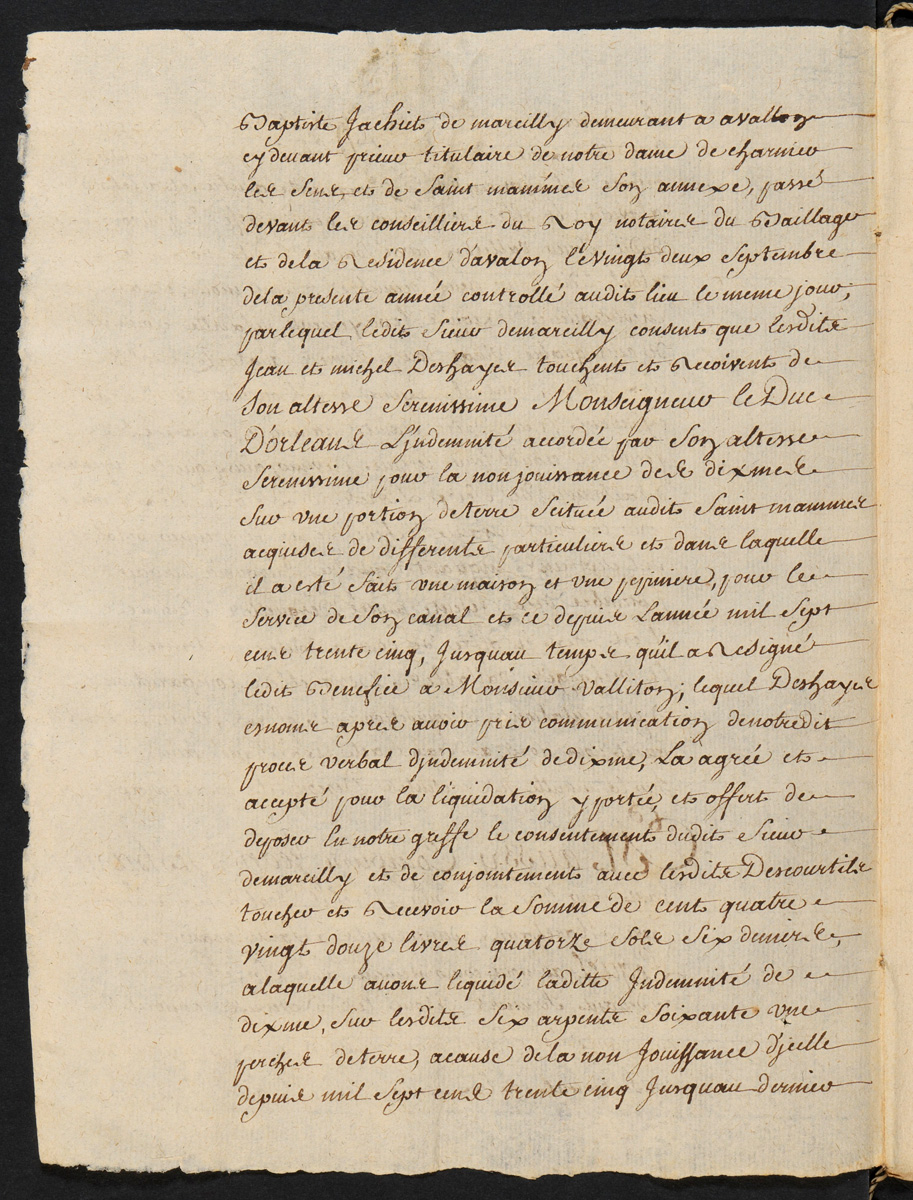 Baptiste Jachiet de marcilly demeurant a avallon
cy devant prieur titulaire de notre dame de charnier
les sens, et de Saint mammes son annexe, passé
devant les conseilliers du Roy notaires du Baillage
et dela Residence d'avalon le vingt deux Septembre
dela presente année controllé audit lieu le meme jour,
par lequel ledit Sieur demarcilly consent que lesdits
Jean et michel Deshayes touchent et Reçoivent de
Son altesse Serenissime Monseigneur le Duc
D'orleans L'jndemnité accordée par Son altesse
Serenissime pour la non jouissance des dixmes
Sur vne portion deterre Scituée audit Saint mammes
acquises de differents particuliers et dans laquelle
il a esté fait vne maison et vne pepiniere, pour le
Service de Son canal et ce depuis L'année mil Sept
cens trente cinq, Jusquau temps qu'il a Resigné
ledit Benefice a Monsieur Valliton; lequel Deshayes
esnoms apres avoir pris communication denotredit
proces verbal d'jndemnité dedixme, La agrée et
accepté pour la liquidation y portée, et offert de
deposer En notre greffe le consentement dudit Sieur
demarcilly et de conjointement avec lesdits Descourtils
toucher et Recevoir la Somme de cent quatre
vingt douze livres quatorze Sols Six deniers,
alaquelle avons liquidé laditte Jndemnité de
dixme, Sur lesdits Six arpents Soixante vne
perches deterre, acause dela non Jouissance d'jcelle
depuis mil Sept cens trente cinq Jusquau dernier